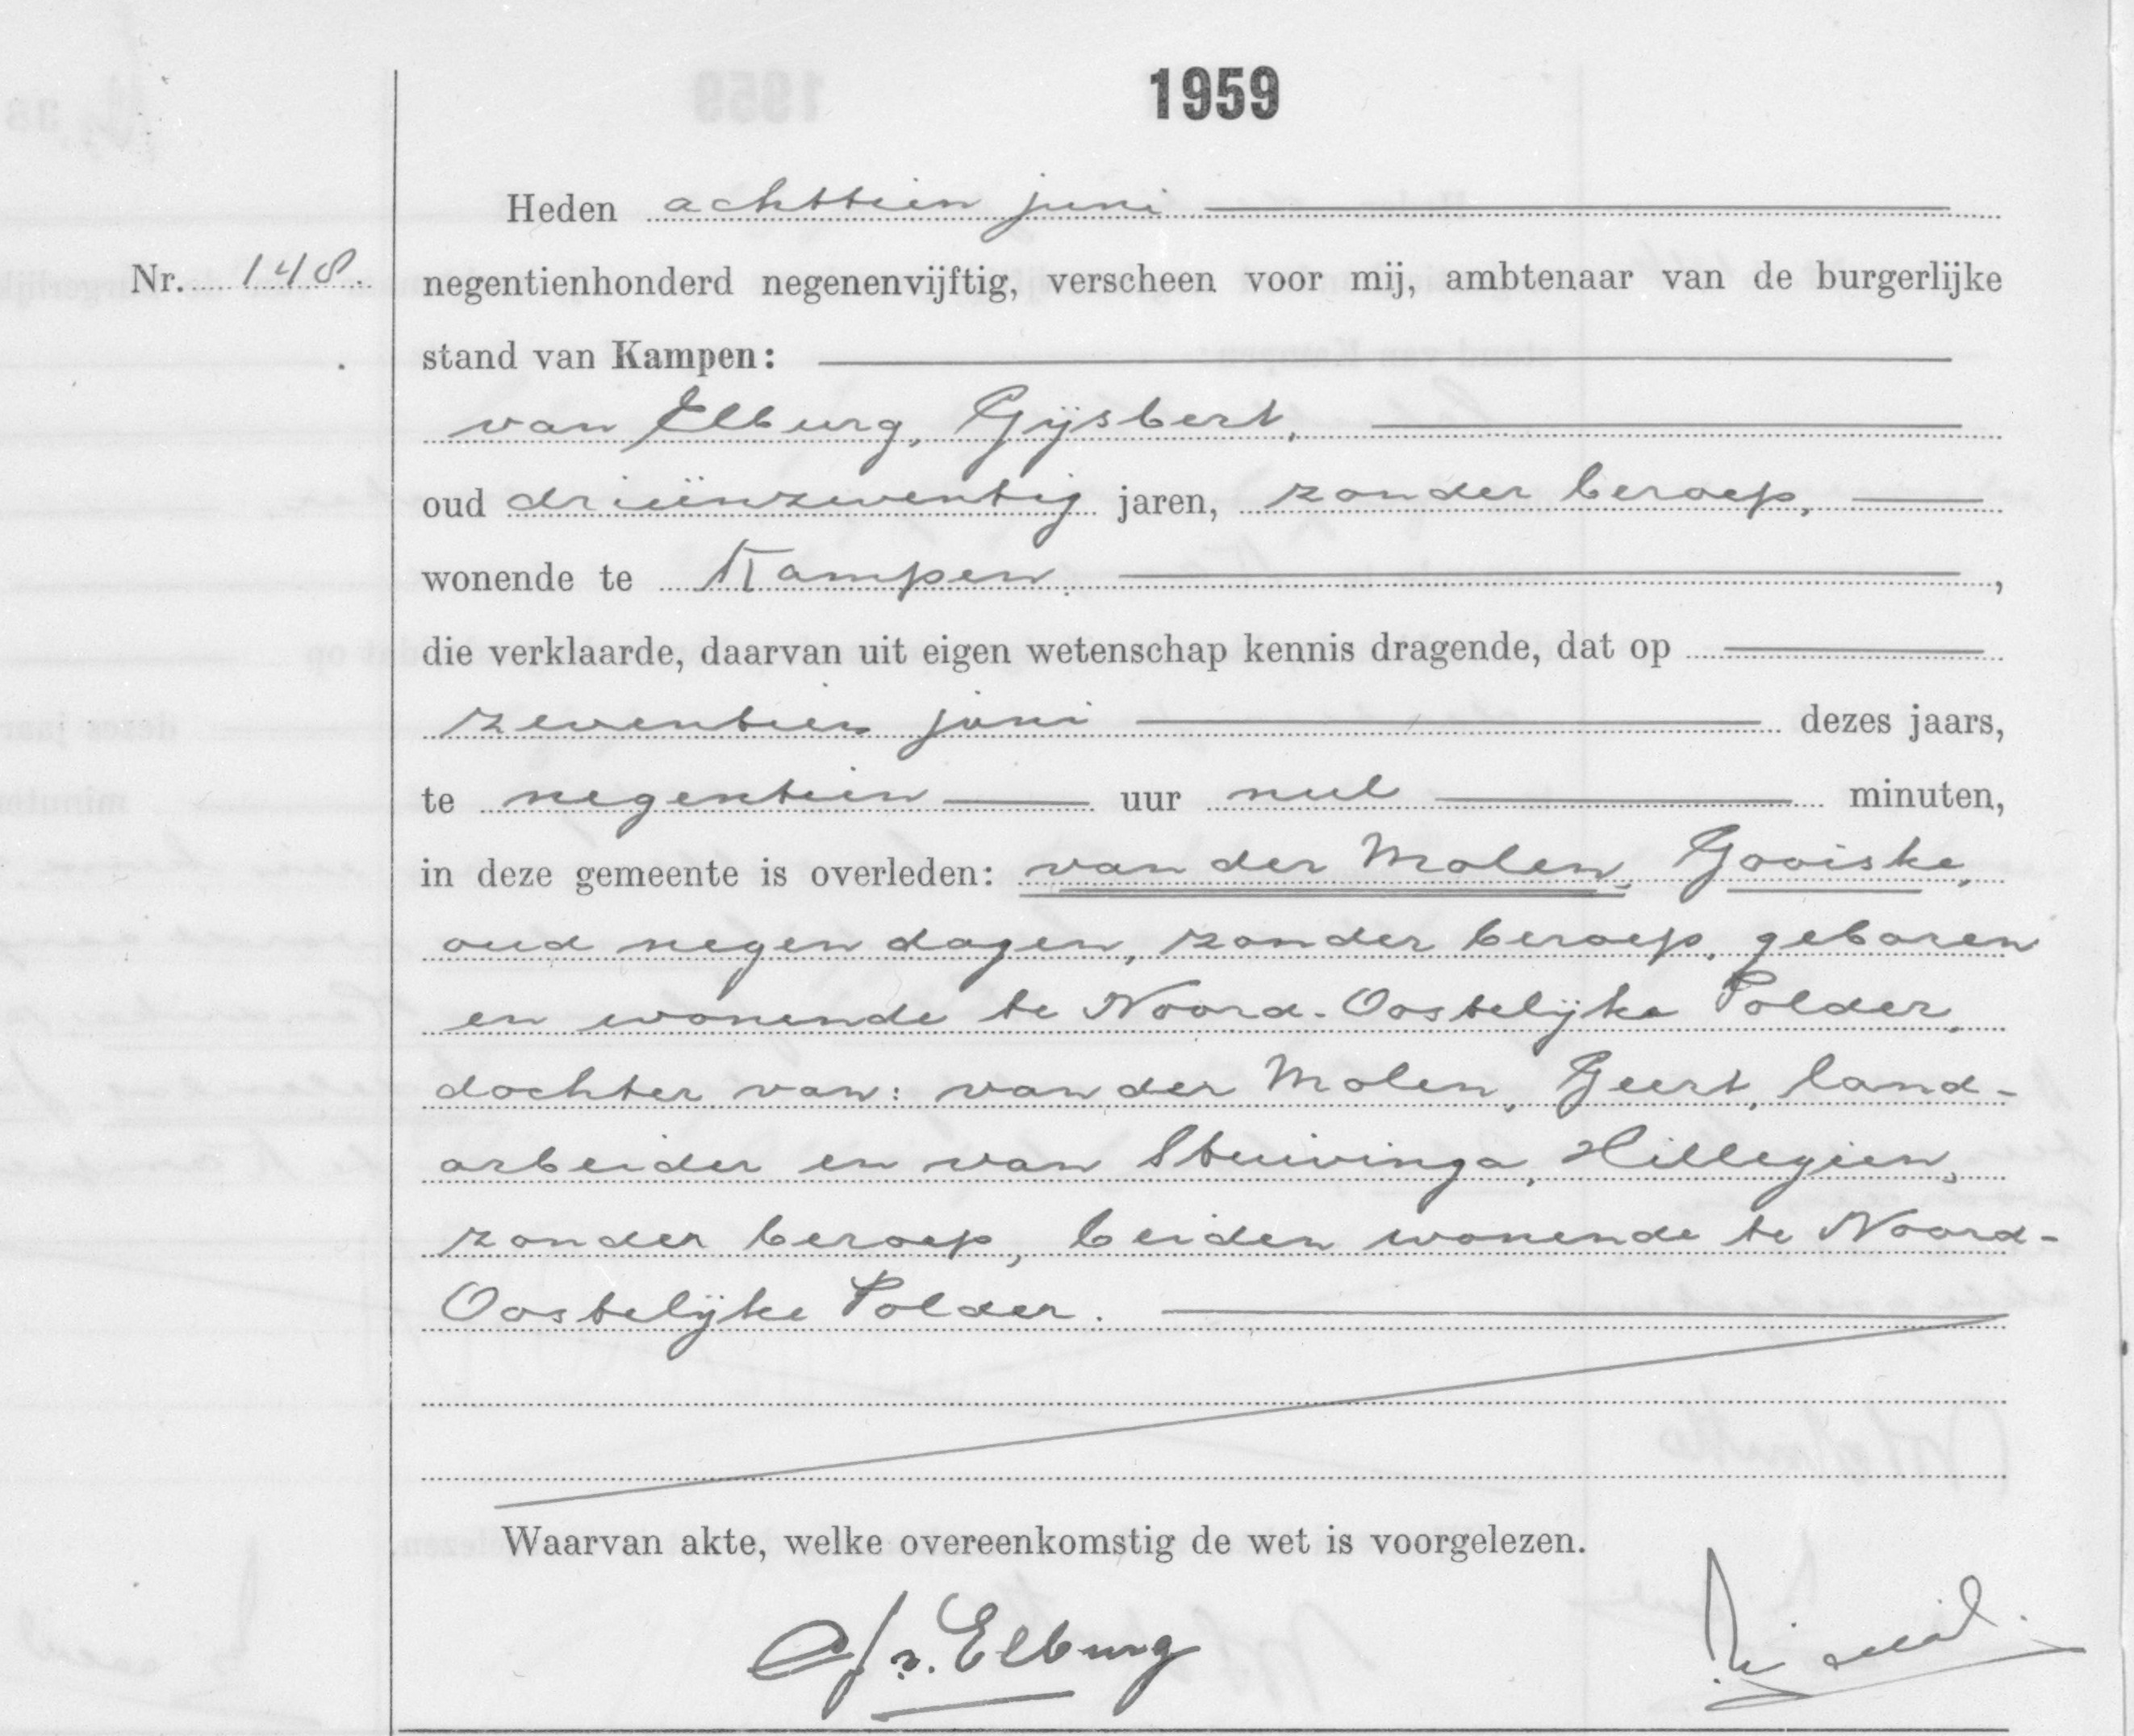 1959
Heden achttien juni
Nr. 148. negentienhonderd negenenvijftig, verscheen voor mij, ambtenaar van de burgerlijke
stand van Kampen:
van Elburg, Gijsbert,
oud drieënzeventig jaren, zonder beroep,
wonende te Kampen ,
die verklaarde, daarvan uit eigen wetenschap kennis dragende, dat op
zeventien juni dezes jaars,
te negentien uur nul minuten,
in deze gemeente is overleden: van der Molen, Gooiske,
oud negen dagen, zonder beroep, geboren
en wonende te Noord-Oostelijke Polder,
dochter van: van der Molen, Geert, land-
arbeider en van Stuivinga, Hillegien,
zonder beroep, beiden wonende te Noord-
Oostelijke Polder.
Waarvan akte, welke overeenkomstig de wet is voorgelezen.
G. v. Elburg